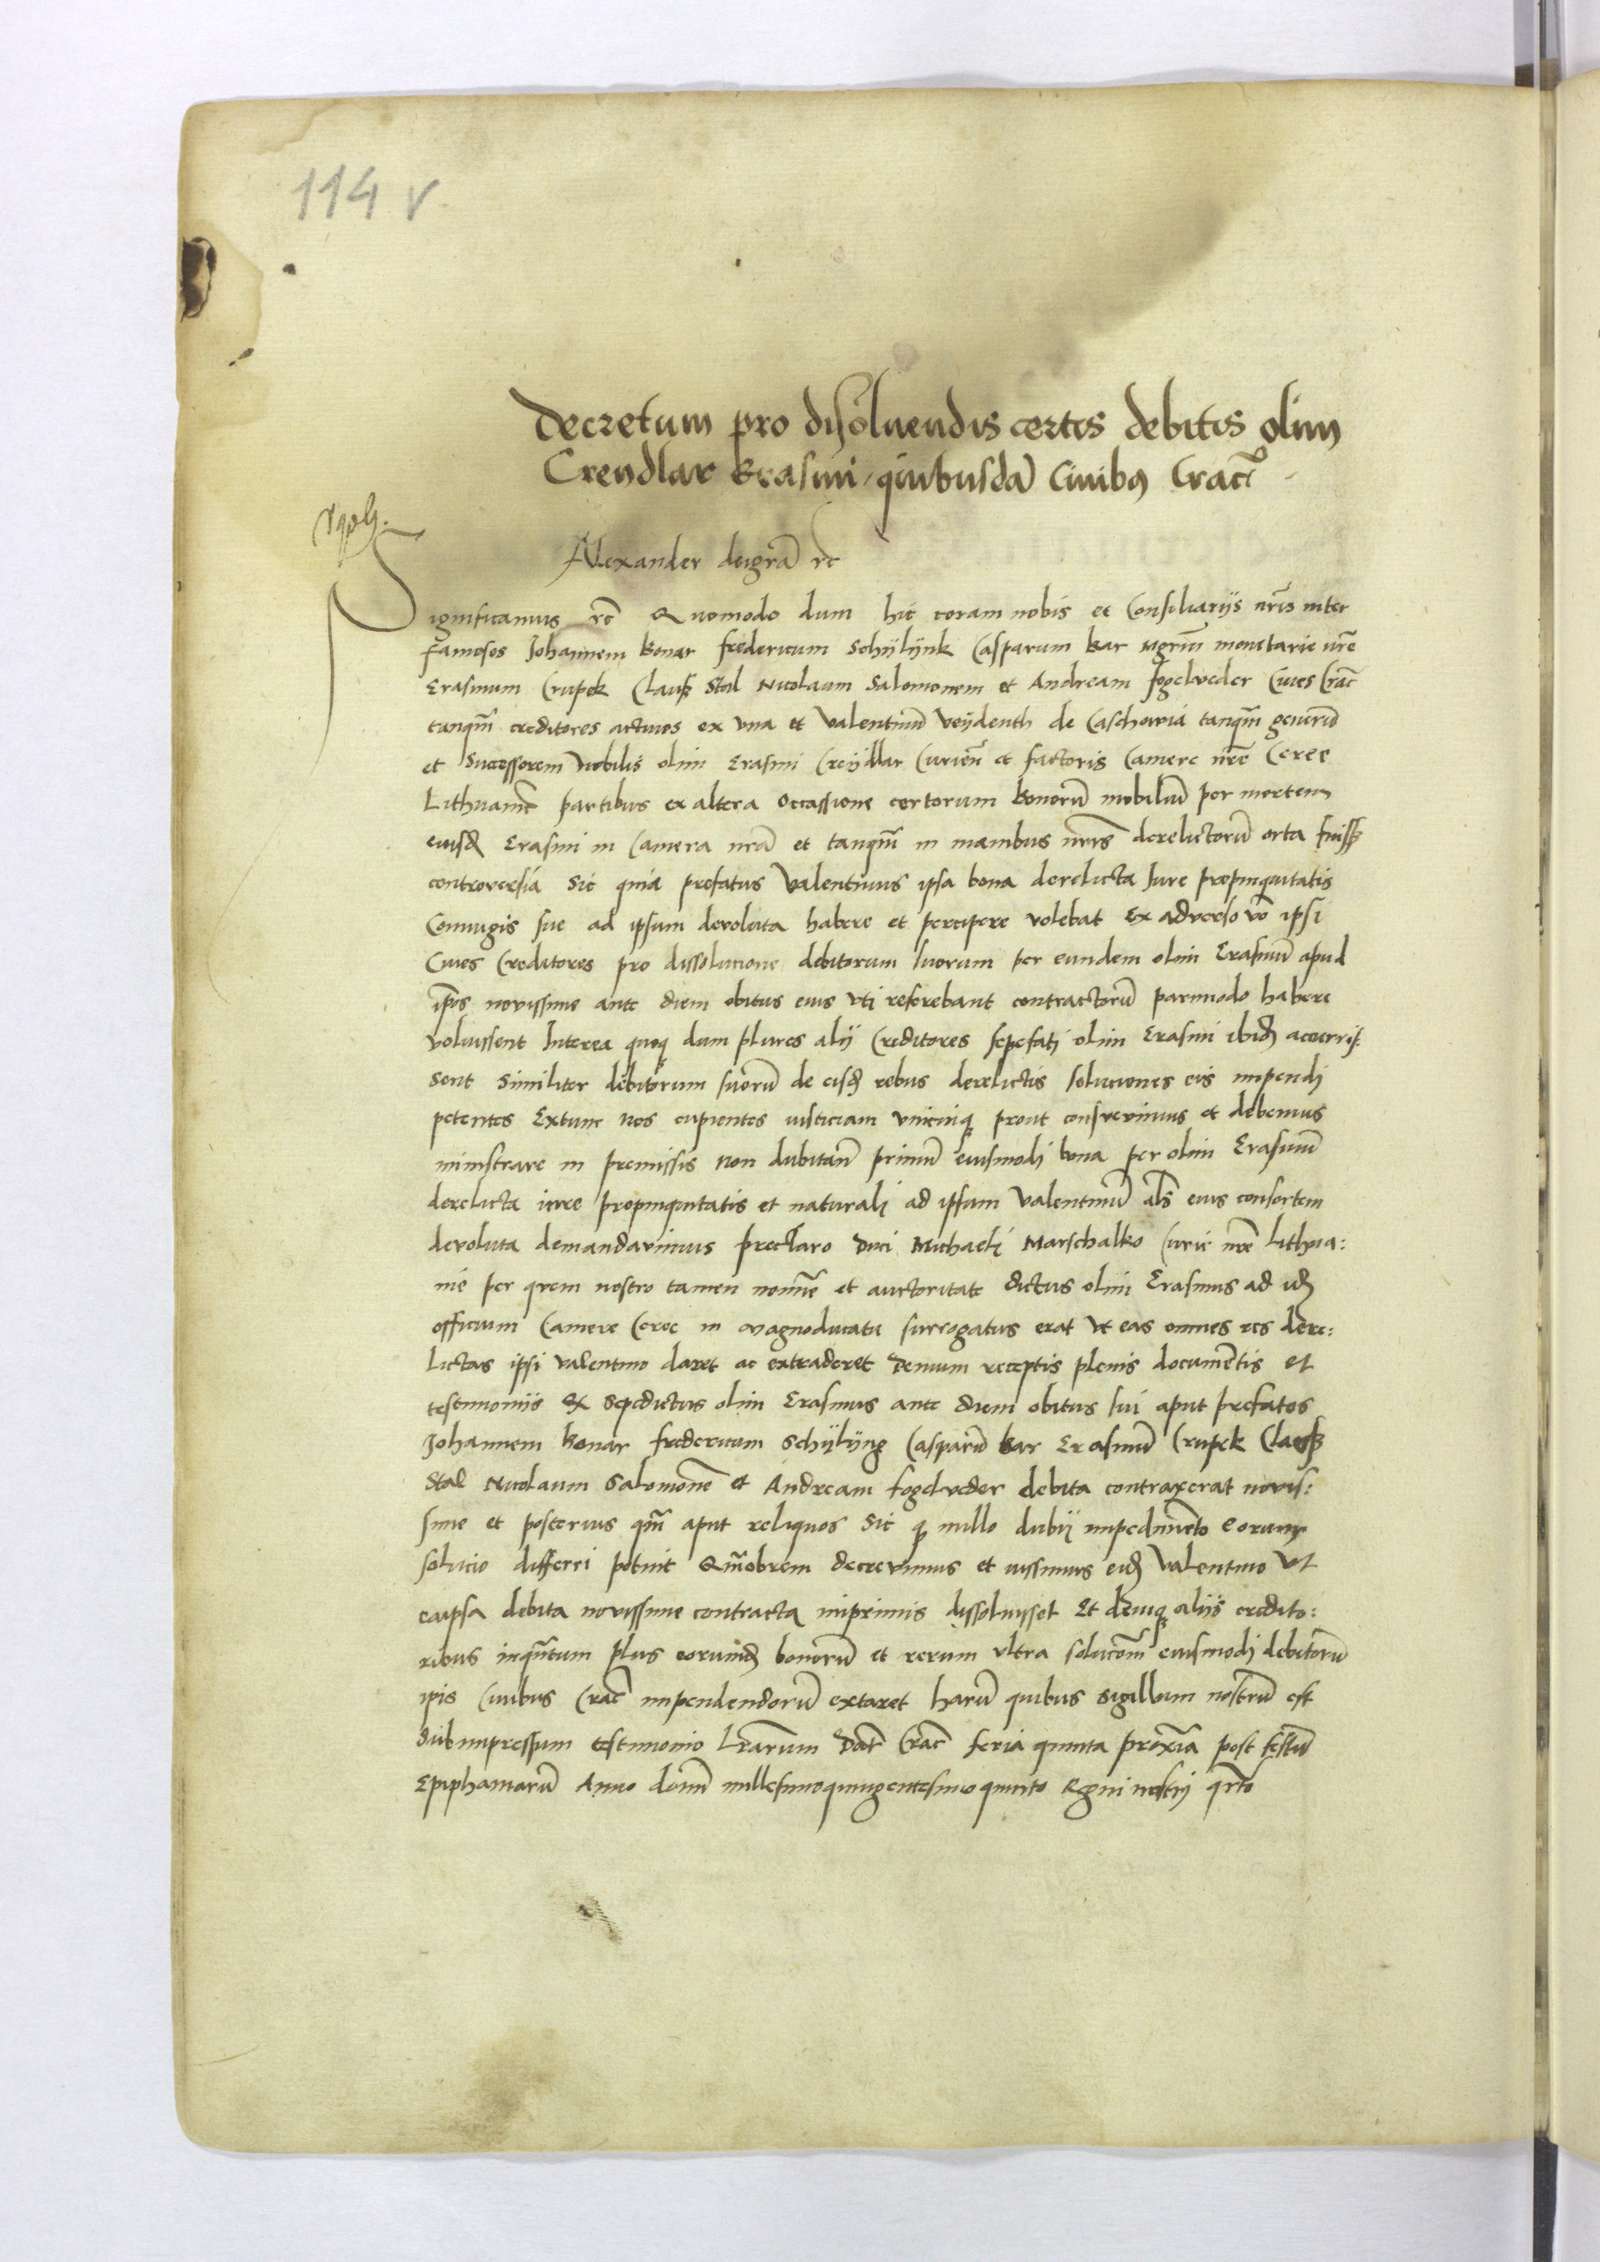 114 v
Decretum pro disoluendis certis debitis olim
Creydlar Erasmi quibusdā Ciuibus Crac
Alexander dei grā rc
Significamus rc Quomodo dum hic coram nobis et Consiliarijs nrīs inter
famosos Johannem Bonar fredericum Schylynk Casparum Bar mgrm monetarie nre
Erasmum Crupek Clauß Stal Nicolaum Salomonem et Andream fogelveder Ciues Crac
tanqm̄ creditores actuos ex vna et Valentinū Veydenth de Caschovia tanqm̄ generū
et Successorem nobilis olim Erasmi Creydlar Curien̄ et factoris Camere nre Ceree
Lithuanie partibus ex altera Occassione certorum bonorū mobiliū per mortem
eiusd Erasmi in Camera nrā et tanqm̄ in manibus nrīs derelictorū orta fuissz
controversia Sic quia prefatus Valentinus ipsa bona derelicta Iure propinquitatis
Coniugis sue ad ipsum devoluta habere et percipere volebat Ex adverso vo ipsi
Ciues Creditores pro dissolucione debitorum suorum per eundem olim Erasmū apud
ipos novissime ante diem obitus eius vti referebant contractorū parimodo habere
voluissent Interea quoq dum plures alij Creditores sepefati olim Erasmi ibid accurris
sent Similiter debitorum suorū de eisd rebus derelictis soluciones eis impendi
petentes Extunc Nos cupientes iusticiam vnicuiq prout consuevimus et debemus
ministrare in premissis non dubitan̄ primū eiusmodi bona per olim Erasmū
derelicta iure propinquitatis et naturali ad ipsum Valentinū als eius consortem
devoluta demandavimus preclaro Duci Michaeli Marschalko Curie nre Lithua:
nie per quem nostro tamen nomine et auctoritate dictus olim Erasmus ad id
officium Camere Ceree in magnoducatu surrogatus erat vt eas omnes res dere:
lictas ipsi Valentino daret ac extraderet Demum receptis plenis documētis et
testimonijs Qz Sepedictus olim Erasmus ante diem obitus sui aput prefatos
Johannem Bonar fredericum Schylyng Casparū Bar Erasmū Crupek Clauß
Stal Nicolaum Salomonē et Andream fogelveder debita contraxerat novis:
sime et posterius qm̄ aput reliquos Sic q nullo dubij impedimēto eorum
solucio differri potuit Qm̄obrem decrevimus et iussimus eid Valentino vt
eaipsa debita novissime contracta inprimis dissoluisset Et deniq alijs credito:
ribus inquātum plus eorund bonorū et rerum vltra solucōm̄ eiusmodi debitorū
ipis Ciuibus Crac impendendorū extaret harū quibus Sigillum nostrū est
Subimpressum testimonio Lrārum Dat Crac feria quinta proxīa post festū
Epiphaniarū Anno domī millesimoquingentesimo quinto Regni nostrj qrto